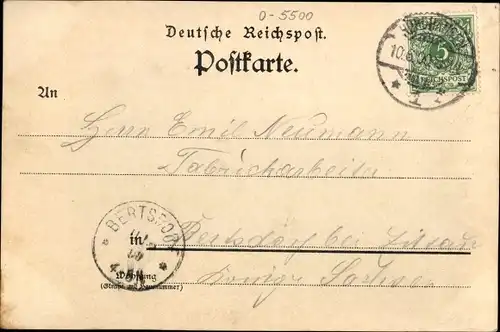 0-5500
Deutsche Reichspost.
Postkarte.
5
REICHSPOST
10.6.
1
An
Herrn Emil Neumann
Fabrikarbeiter
BERTSDORF
in Bertsdorf bei Zittau
Wohnung
(Straße und Hausnummer)
Königr. Sachsen